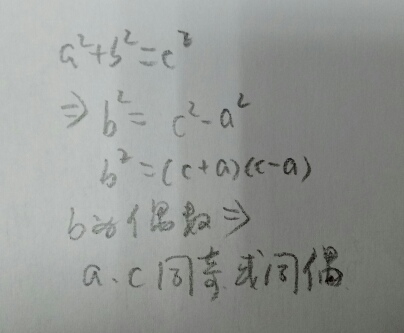 a²+b²=c²
⇒b²=c²-a²
b²=(c+a)(c-a)
b为偶数⇒
a、c同奇或同偶